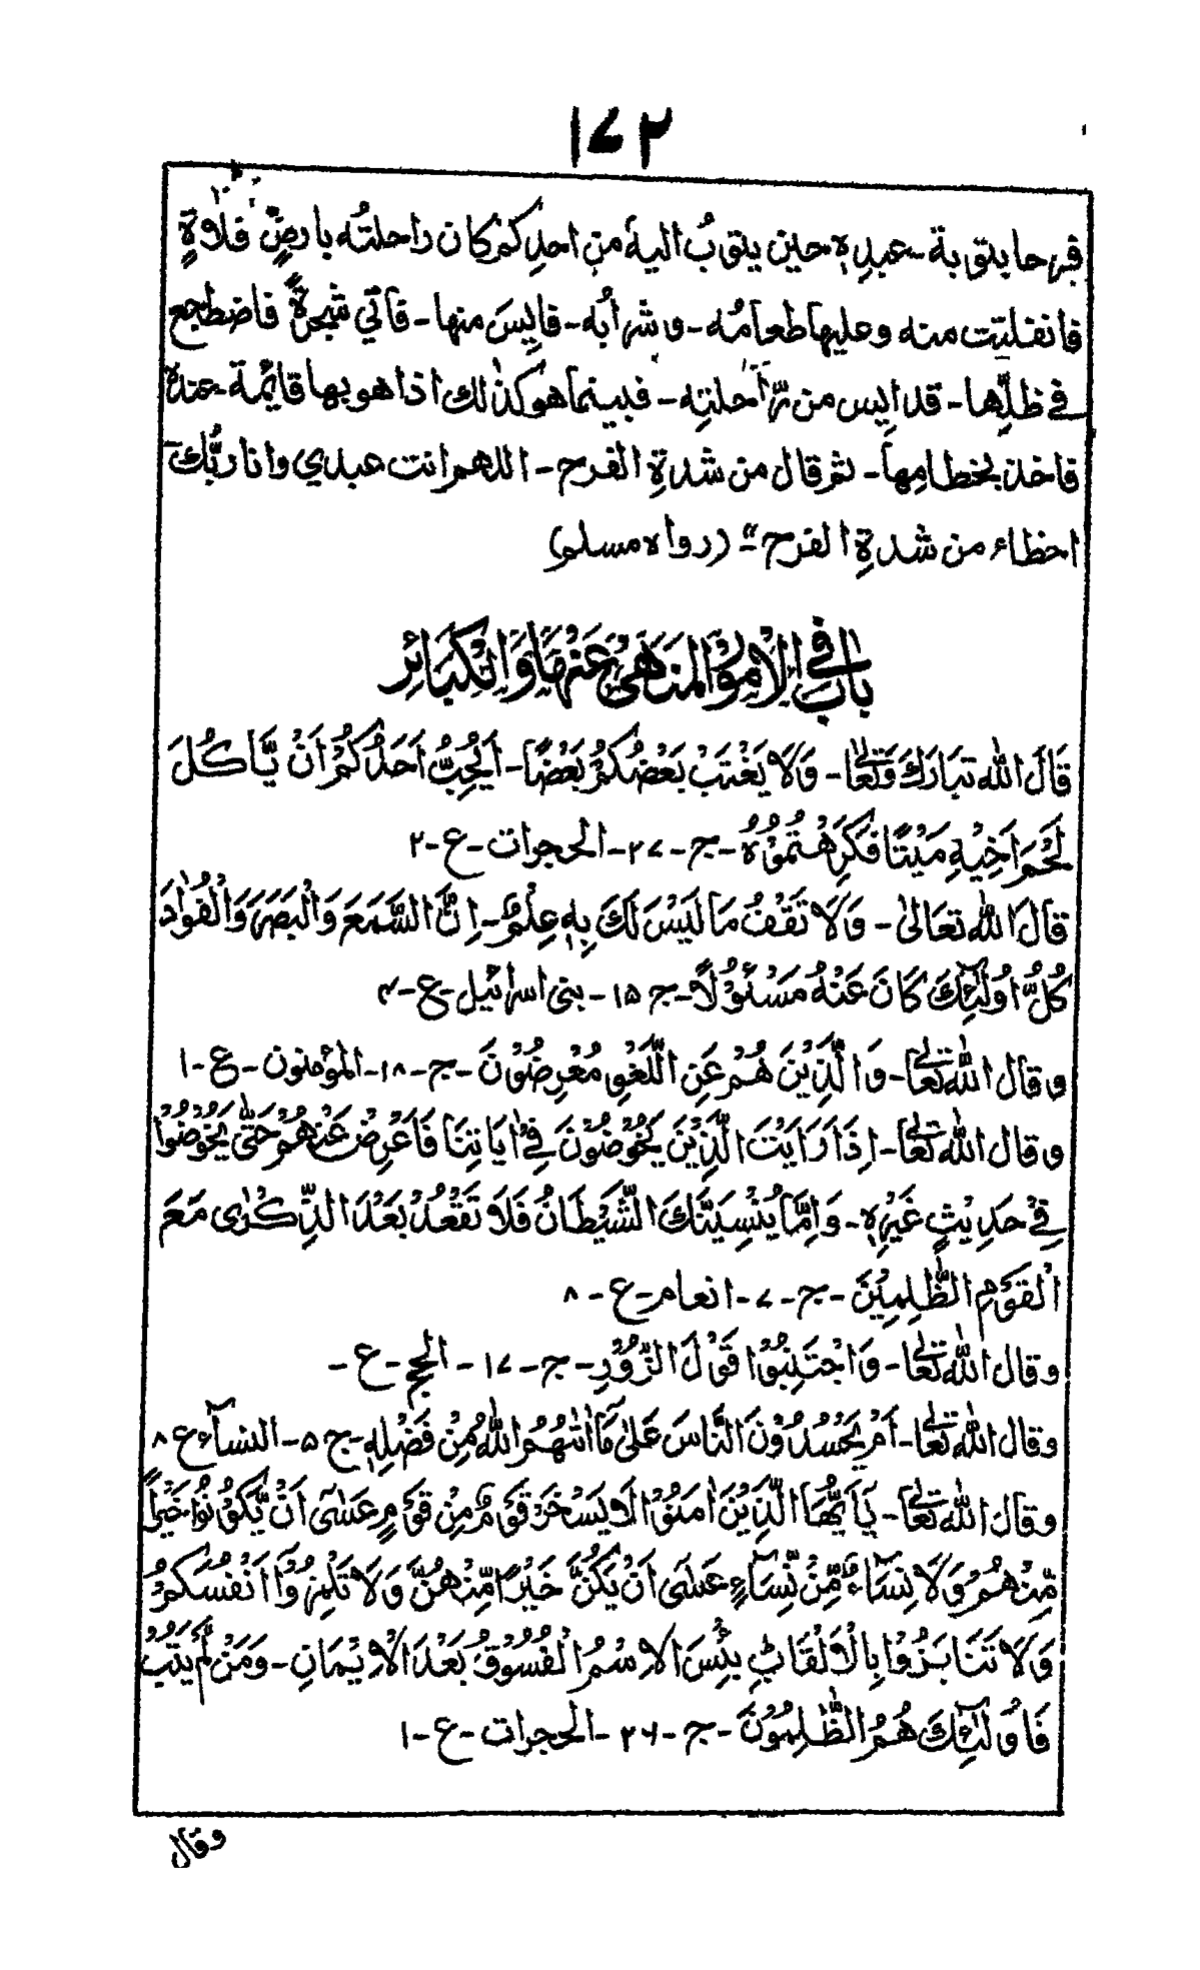 ۱۷۲
فرحا بتوبة ـ عبدِہٖ حین یتوبُ الیه من احدِکم کان راحلتُه بارضٍ فلاةٍ
فانفلتت منه وعلیها طعامُه ـ وشرابُه ـ فایِسَ منها ـ فأتی شجرةً فاضطجع
فی ظلِّها ـ قد ایِس من رَّاحلتِه ـ فبینما هو کذٰلك اذا هو بها قایِٔمة عندہ
فاخذ بخطامِها ـ ثم قال من شدةِ الفرح ـ اللهم انت عبدي وانا ربُّك
اخطاء من شدةِ الفرح ـ" (رواہ مسلم)
بَابٌ فِی الْاُمُوْرِ الْمَنَاهِیْ عَنْهَا وَالْکَبَائِرِ
قَالَ اللّٰه تَبَارَكَ وَتَعَالٰی ـ وَلَا یَغْتَبْ بَعْضُکُمْ بَعْضًا ـ اَیُحِبُّ اَحَدُکُمْ اَنْ یَّاکُلَ
لَحْمَ اَخِیْهِ مَیْتًا فَکَرِهْتُمُوْهُ ـ ج ـ ۲۷ ـ الحجرات ـ ع ـ ۲
قَالَ اللّٰه تعَالیٰ ـ وَلَا تَقْفُ مَا لَیْسَ لَكَ بِهٖ عِلْمٌ ـ اِنَّ السَّمْعَ وَالْبَصَرَ وَالْفُوٰادَ
کُلُّ اُولٰٓئِكَ کَانَ عَنْهُ مَسْئُوْلًا ـ ج ۱۵ ـ بنی اسرائیل ـ ع ـ ۴
وقال اللّٰه تعالٰی ـ وَالَّذِیْنَ هُمْ عَنِ اللَّغْوِ مُعْرِضُوْنَ ـ ج ـ ۱۸ ـ المؤمنون ـ ع ـ ۱
وقال اللّٰه تعالٰی ـ اِذَا رَاَیْتَ الَّذِیْنَ یَخُوْضُوْنَ فِیْ اٰیَاتِنَا فَاَعْرِضْ عَنْهُمْ حَتّٰی یَخُوْضُوْا
فِیْ حَدِیْثٍ غَیْرِہٖ ـ وَاِمَّا یُنْسِیَنَّكَ الشَّیْطَانُ فَلَا تَقْعُدْ بَعْدَ الذِّکْرٰی مَعَ
الْقَوْمِ الظّٰلِمِیْنَ ـ ج ـ ۷ ـ انعام ـ ع ـ ۸
وقال اللّٰه تعالٰی ـ وَاجْتَنِبُوْا قَوْلَ الزُّوْرِ ـ ج ـ ۱۷ ـ الحج ـ ع ـ
وقال اللّٰه تعالٰی ـ اَمْ یَحْسُدُوْنَ النَّاسَ عَلٰی مَآ اٰتٰهُمُ اللّٰهُ مِنْ فَضْلِهٖ ـ ج ۵ ـ النسآء ع ۸
وقال اللّٰه تعالٰی ـ یٰٓاَیُّهَا الَّذِیْنَ اٰمَنُوْا لَا یَسْخَرْ قَوْمٌ مِنْ قَوْمٍ عَسٰٓی اَنْ یَّکُوْنُوْا خَیْراً
مِّنْهُمْ وَلَا نِسَآءٌ مِّنْ نِّسَآءٍ عَسٰٓی اَنْ یَکُنَّ خَیْرًا مِّنْهُنَّ وَلَا تَلْمِزُوْآ اَنْفُسَکُمْ
وَلَا تَنَابَزُوْا بِالْاَلْقَابِ بِئْسَ الْاِسْمُ الْفُسُوْقُ بَعْدَ الْاِیْمَانِ ـ وَمَنْ لَّمْ یَتُبْ
فَاُولٰٓئِكَ هُمُ الظّٰلِمُوْنَ ـ ج ـ ۲۶ ـ الحجرات ـ ع ـ ۱
وقال